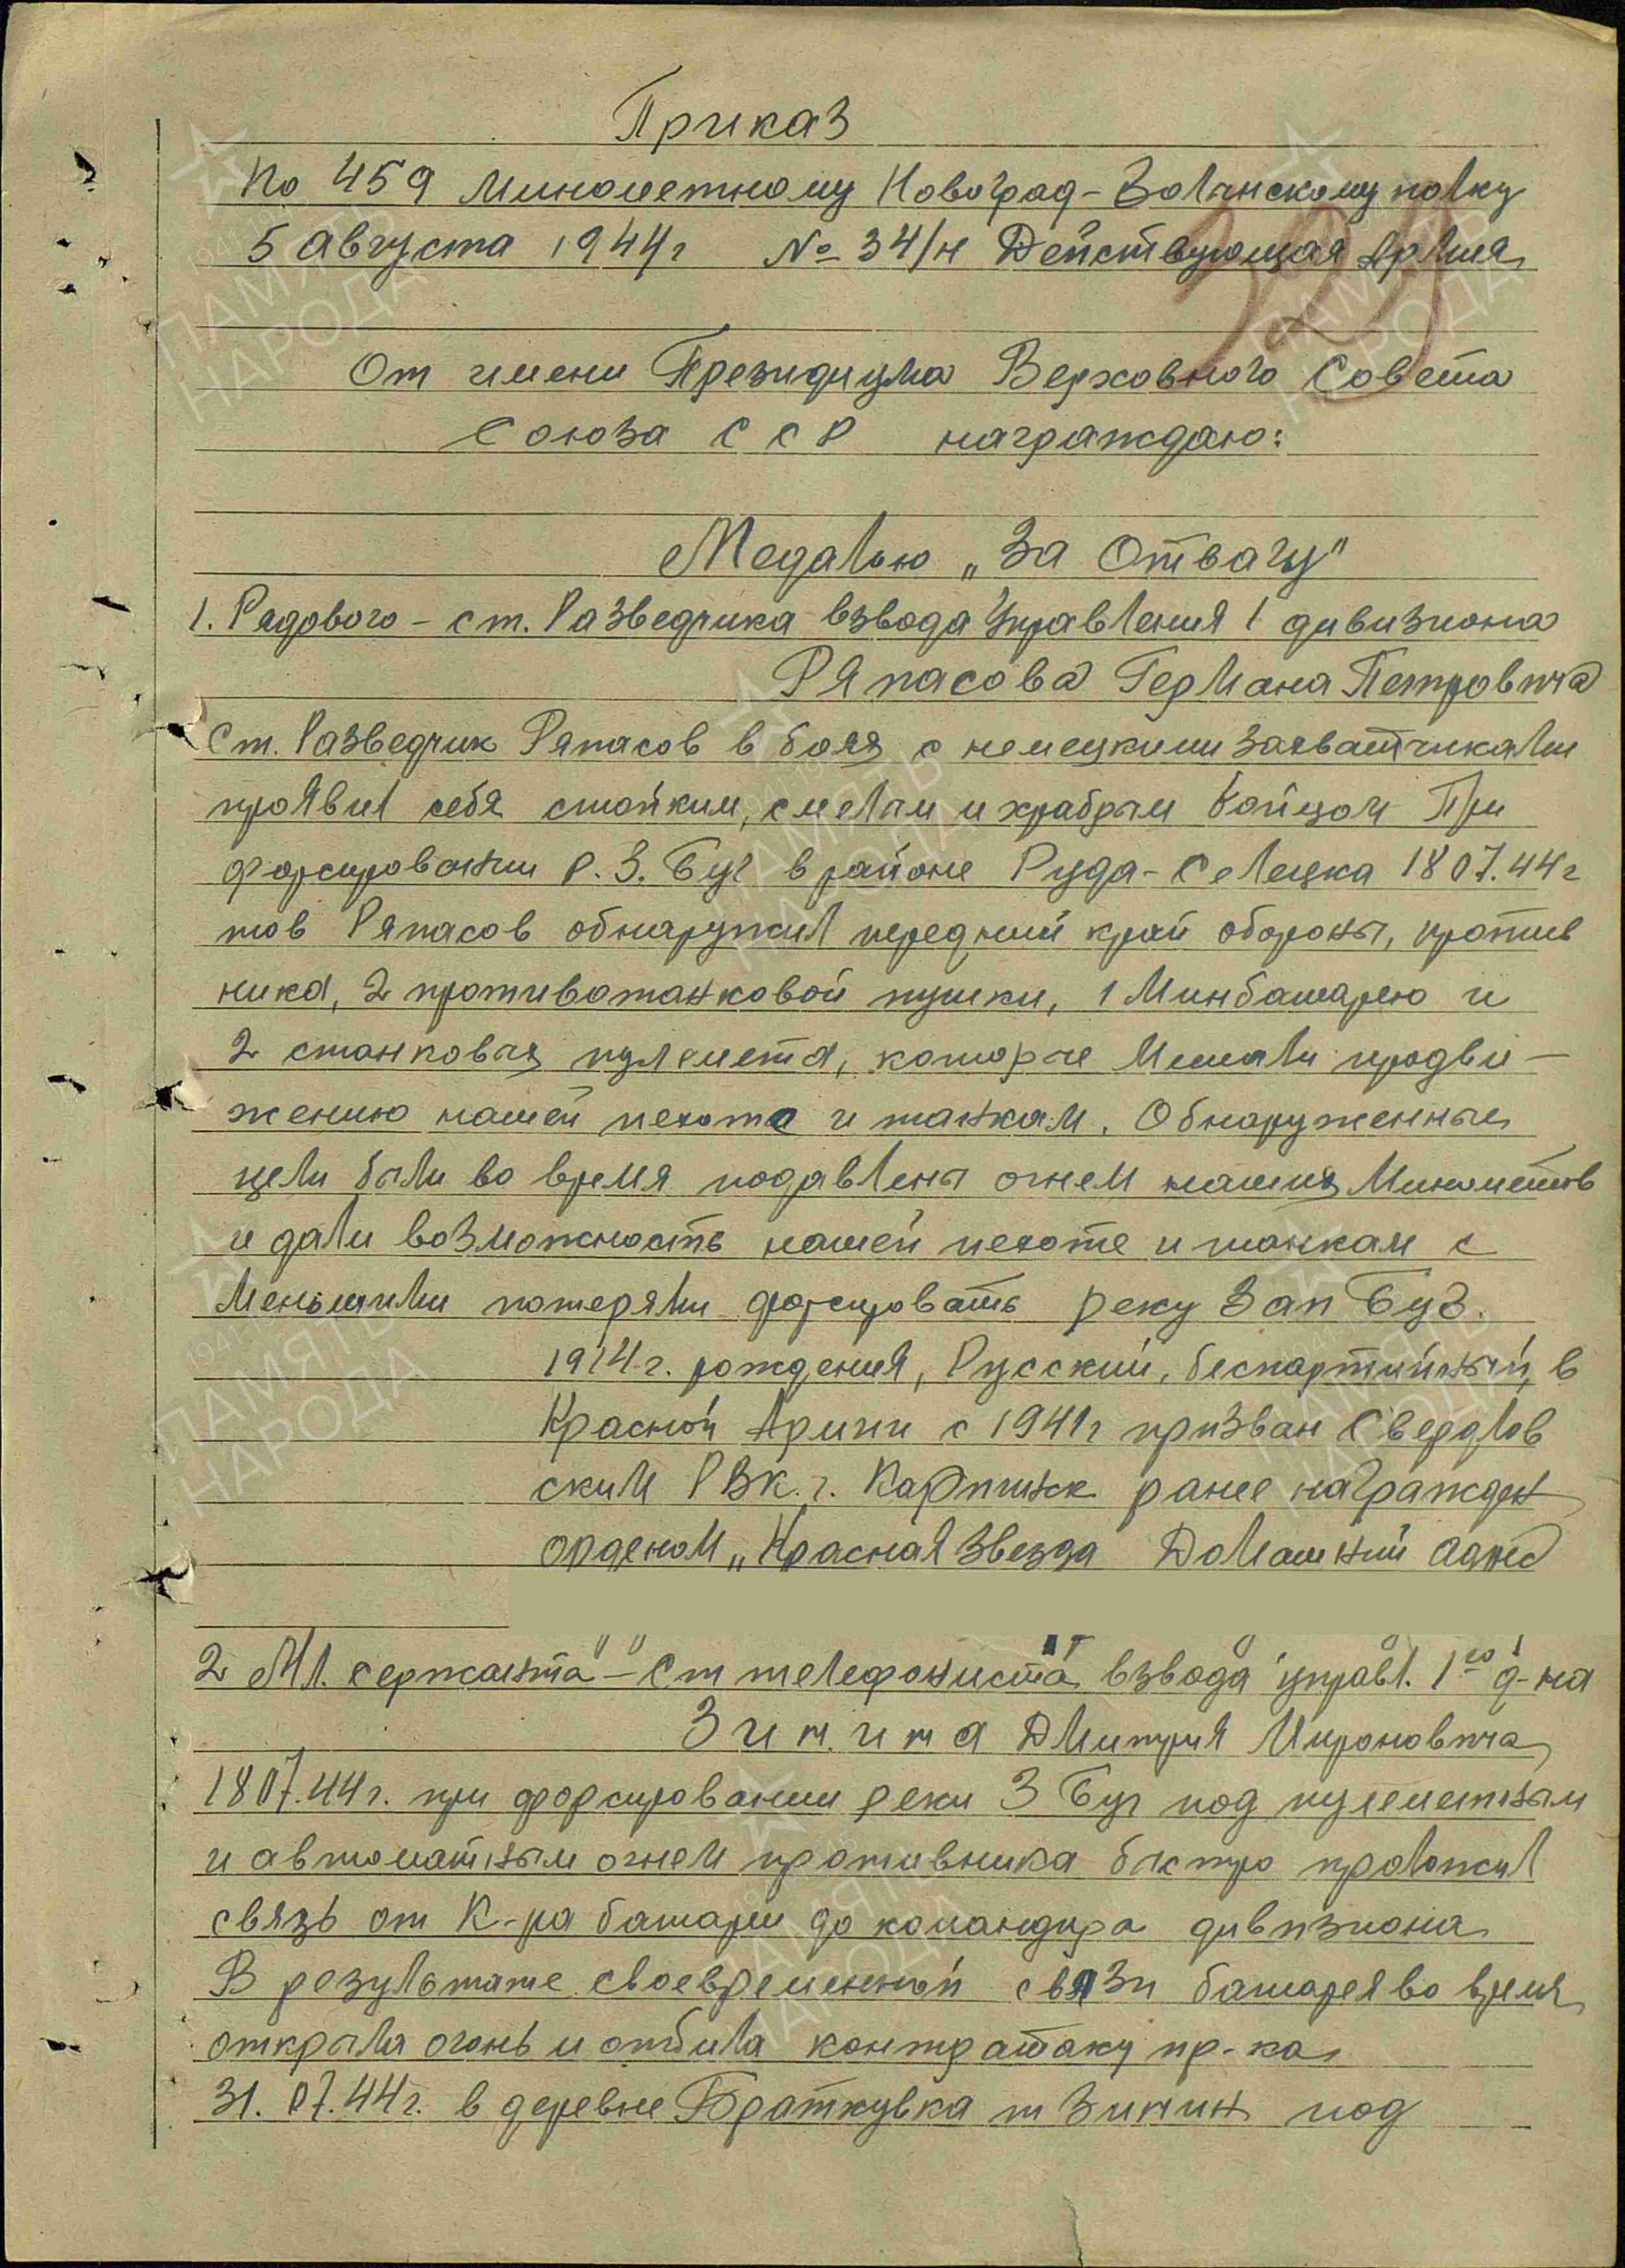 Приказ
По 459 минометному Новоград-Волынскому полку
5 августа 1944г № 34/н Действующая Армия
От имени Президиума Верховного Совета
Союза ССР награждаю:
Медалью „За Отвагу"
1. Рядового - ст. Разведчика взвода Управления 1 дивизиона
Ряпасова Германа Петровича
Ст. Разведчик Ряпасов в боях с немецкими захватчиками
проявил себя стойким, смелым и храбрым бойцом При
форсировании р. З. Буг в районе Руда-Селецка 18 07.44г
тов Ряпасов обнаружил передний край обороны, против
ника, 2 противотанковой пушки, 1 Минбатарею и
2 станковых пулемета, которые Мешали продви-
жению нашей пехоте и танкам. Обнаруженные
цели были во время подавлены огнем наших Минометов
и дали возможность нашей пехоте и танкам с
Меньшими потерями форсировать реку Зап Буг.
1914г. рождения, Русский, беспартийный, в
Красной Армии с 1941г призван Свердлов
ским РВК. г. Карпинск ранее награжден
орденом „Красная Звезда Домашний адрес
2 Мл. сержанта - Ст телефониста взвода управл. 1го д-на
Зинина Дмитрия Мироновича
18 07.44г. при форсировании реки З Буг под пулеметным
и автоматным огнем противника быстро проложил
связь от К-ра батареи до командира дивизиона
В результате своевременной связи батарея во время
открыла огонь и отбила контратаку пр-ка
31. 07.44г. в деревне Браткувка т Зинин под
ПАМЯТЬ
НАРОДА